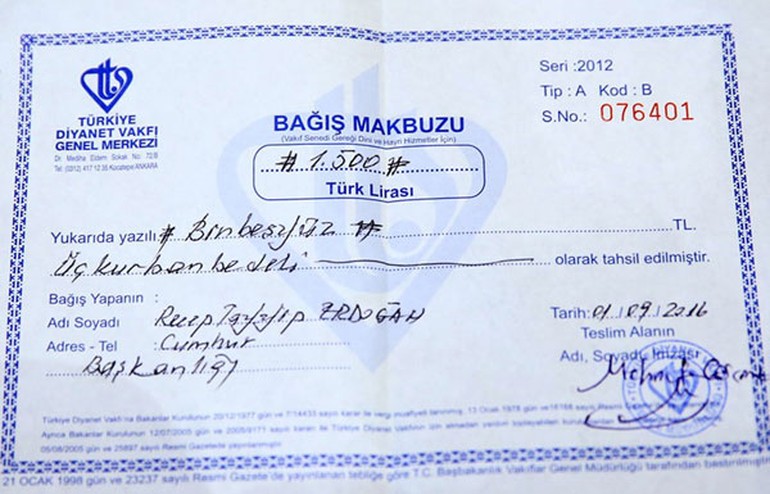 TÜRKİYE
DİYANET VAKFI
GENEL MERKEZİ
Dr. Mediha Eldem Sokak No: 72/B
Tel: (0312) 417 12 35 Kocatepe ANKARA
Seri :2012
Tip : A Kod : B
S.No.: 076401
BAĞIŞ MAKBUZU
(Vakıf Senedi Gereği Dini ve Hayri Hizmetler İçin)
# 1.500 #
Türk Lirası
Yukarıda yazılı # Binbeşyüz # TL.
Üç kurban bedeli olarak tahsil edilmiştir.
Bağış Yapanın :
Adı Soyadı : Recep Tayyip ERDOĞAN
Adres - Tel : Cumhur
Başkanlığı
Tarih: 01 / 09 / 2016
Teslim Alanın
Adı, Soyadı, İmzası
Mehmet
Türkiye Diyanet Vakfı'na Bakanlar Kurulunun 20/12/1977 gün ve 7/14433 sayılı kararı ile vergi muafiyeti tanınmış, 13 Ocak 1978 gün ve 16168 sayılı Resmi
Ayrıca Bakanlar Kurulunun 12/07/2005 gün ve 2005/9171 sayılı kararı ile Türkiye Diyanet Vakfı'nın izin almadan yardım toplayabilen
05/08/2005 gün ve 25897 sayılı Resmi Gazetede yayınlanmıştır.
21 OCAK 1998 gün ve 23237 sayılı Resmi Gazete de yayınlanan tebliğe göre T.C. Başbakanlık Vakıflar Genel Müdürlüğü tarafından bastırılmıştır.